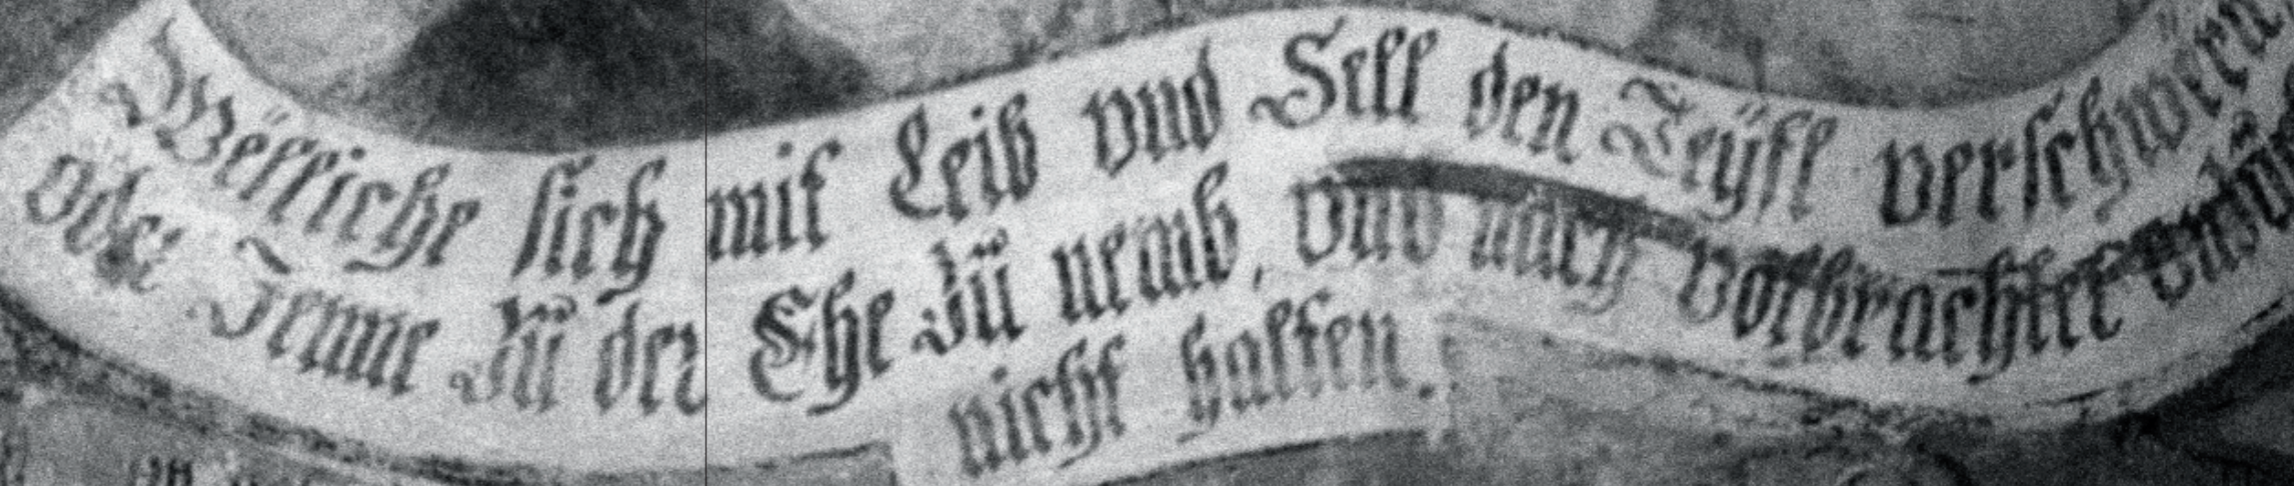 Wëlliche sich mit Leib vnd Sell den Teÿfl verschwëren
oder Jenne Zü der Ehe Zü nemb, vnd nach volbrachter
nicht halten.